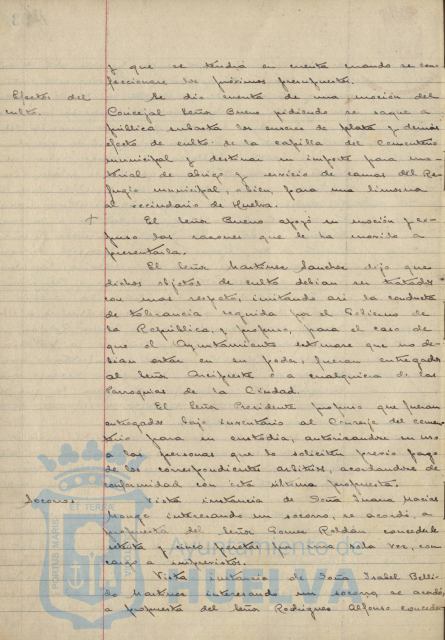 y que se tendrá en cuenta cuando se con
feccionare los próximos presupuestos.
Efectos del
culto.
Se dio cuenta de una moción del
Concejal Señor Bueno pidiendo se saque a
pública subasta los enseres de plata y demás
efecto de culto de la capilla del Cementerio
municipal y destinar su importe para ma-
terial de abrigo y servicio de camas del Re-
fugio municipal, o bien, para una limosna
al vecindario de Huelva.
El Señor Bueno apoyó su moción y ex-
puso las razones que le ha movido a
presentarla.
El Señor Martínez Sánchez dijo que
dichos objetos de culto debían ser tratados
con más respeto, imitando así la conducta
de tolerancia seguida por el Gobierno de
la República, y propuso, para el caso de
que el Ayuntamiento estimare que no de-
bían estar en su poder, fueran entregados
al Señor Arcipreste o a cualquiera de las
Parroquias de la Ciudad.
El Señor Presidente propuso que fueran
entregados bajo inventario al Conserje del cemen
terio para su custodia, autorizandose su uso
a las personas que lo soliciten previo pago
de los correspondientes arbitrios, acordandose de
conformidad con esta última propuesta.
Socorros
Vista instancia de Doña Juana Macías
Monge interesando un socorro, se acordó, a
propuesta del Señor Gómez Roldán concederle
y cinco pesetas por una sola vez, con
cargo a imprevistos.
Vista instancia de Doña Isabel Belli-
do Martínez interesando un socorro se acordó,
a propuesta del Señor Rodríguez Alfonso conceder
PORTUS MARIS ET TERRAE CUSTODIA
Ayuntamiento de
HUELVA